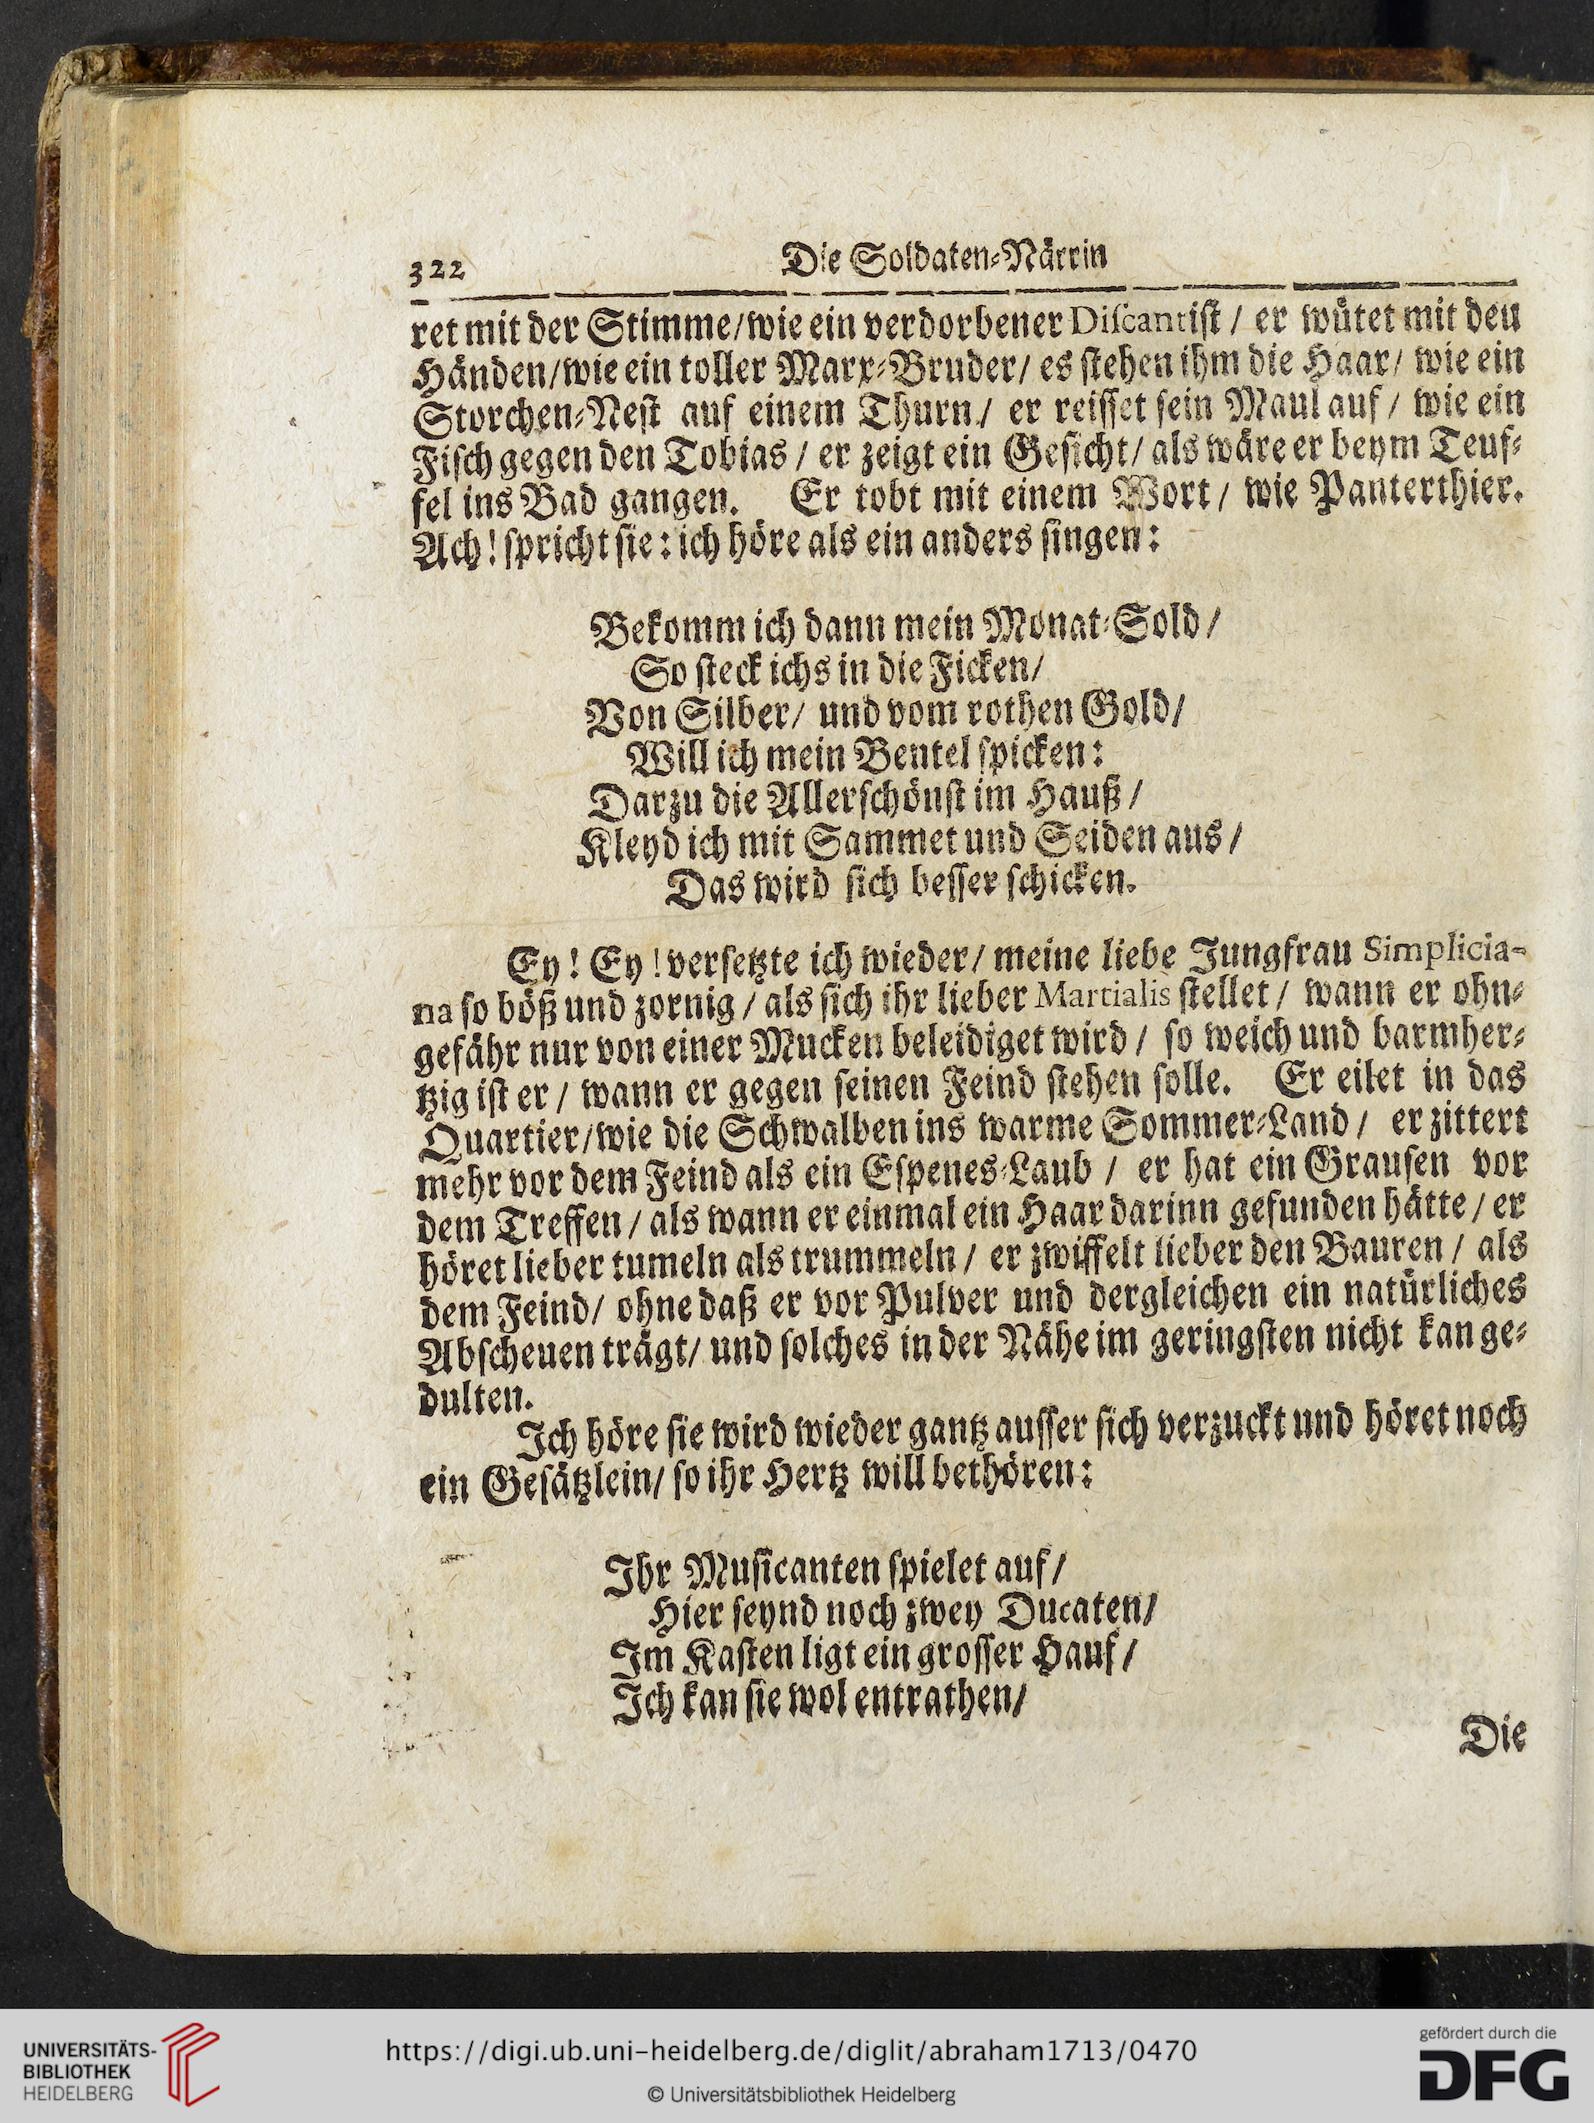 322 Die Soldaten-Närrin
ret mit der Stimme/wie ein verdorbener Diſcantiſt / er wütet mit den
Händen/wie ein toller Marx-Bruder/ es ſtehen ihm die Haar/ wie ein
Storchen-Neſt auf einem Thurn/ er reiſſet ſein Maul auf / wie ein
Fiſch gegen den Tobias / er zeigt ein Geſicht/ als wäre er beym Teuf-
fel ins Bad gangen. Er tobt mit einem Wort / wie Panterthier.
Ach! ſpricht ſie: ich höre als ein anders ſingen:
Bekomm ich dann mein Monat-Sold /
So ſteck ichs in die Ficken/
Von Silber/ und vom rothen Gold/
Will ich mein Beutel ſpicken:
Darzu die Allerſchönſt im Hauß /
Kleyd ich mit Sammet und Seiden aus /
Das wird ſich beſſer ſchicken.
Ey! Ey! verſetzte ich wieder/ meine liebe Jungfrau Simplicia-
na ſo böß und zornig / als ſich ihr lieber Martialis ſtellet / wann er ohn-
gefähr nur von einer Mucken beleidiget wird / ſo weich und barmher-
tzig iſt er / wann er gegen ſeinen Feind ſtehen ſolle. Er eilet in das
Quartier/wie die Schwalben ins warme Sommer-Land / er zittert
mehr vor dem Feind als ein Eſpenes-Laub / er hat ein Grauſen vor
dem Treffen / als wann er einmal ein Haar darinn gefunden hätte / er
höret lieber tumeln als trummeln / er zwiffelt lieber den Bauren / als
dem Feind/ ohne daß er vor Pulver und dergleichen ein natürliches
Abſcheuen trägt/ und ſolches in der Nähe im geringſten nicht kan ge-
dulten.
Ich höre ſie wird wieder gantz auſſer ſich verzuckt und höret noch
ein Geſätzlein/ ſo ihr Hertz will bethören:
Ihr Muſicanten ſpielet auf /
Hier ſeynd noch zwey Ducaten/
Im Kaſten ligt ein groſſer Hauf /
Ich kan ſie wol entrathen/
Die
UNIVERSITÄTS-
BIBLIOTHEK
HEIDELBERG
https://digi.ub.uni-heidelberg.de/diglit/abraham1713/0470
© Universitätsbibliothek Heidelberg
gefördert durch die
DFG